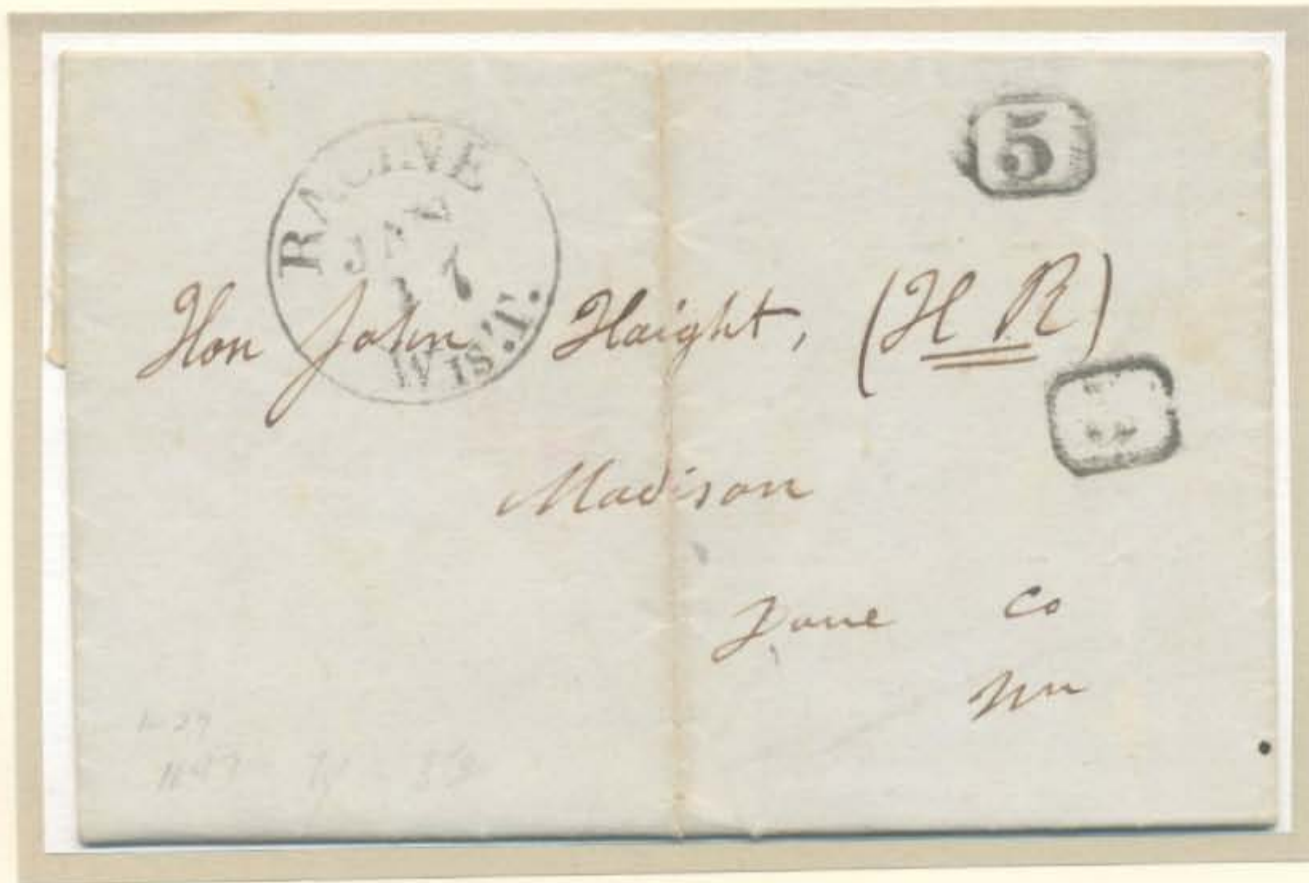 RACINE
JAN
17
WIS.T.
5
Hon John Haight, (H R)
Madison
Dane Co